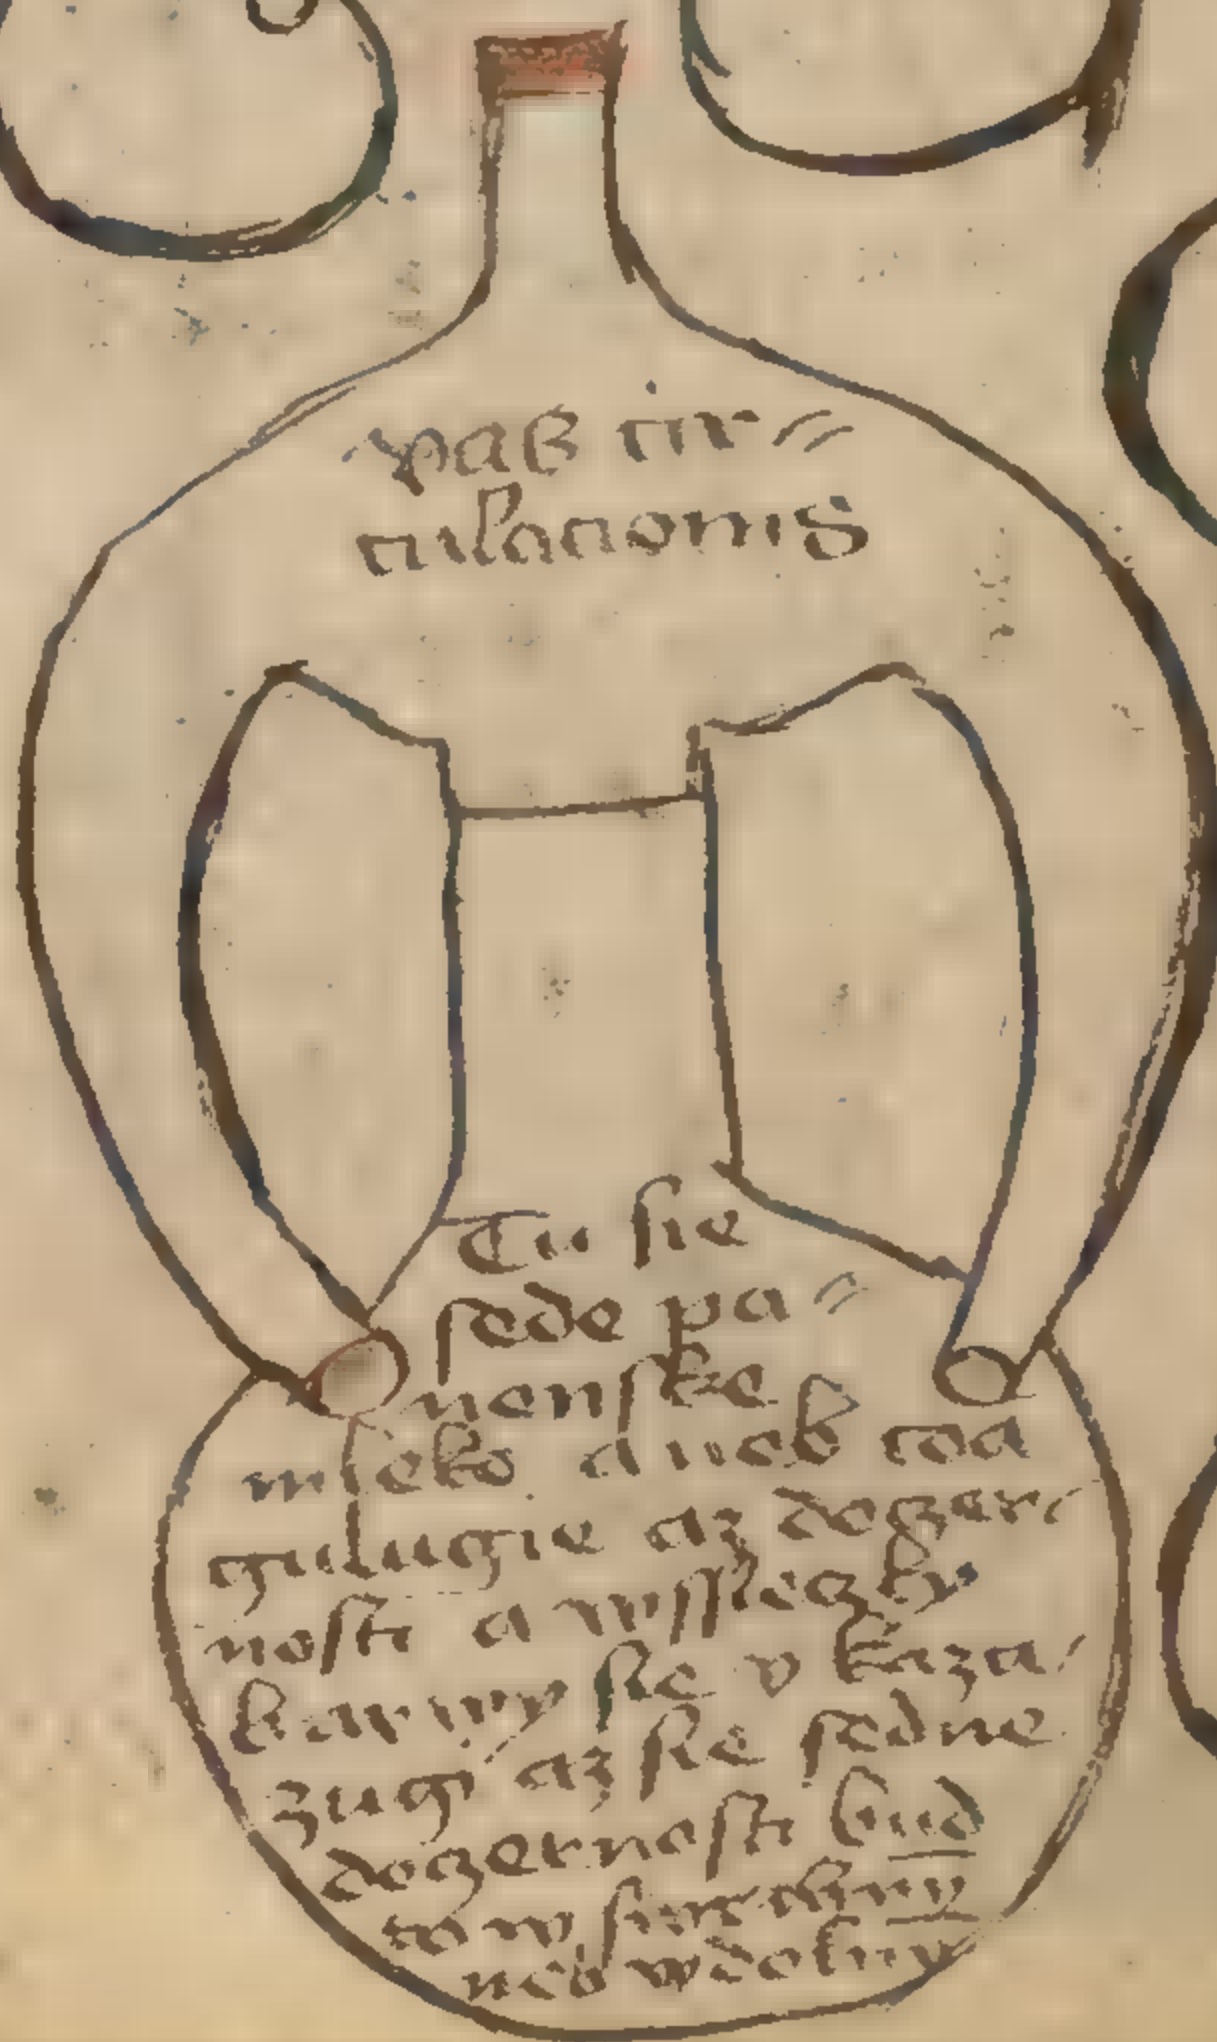 vaß cir〃
culacionis
Tu sie
sede pa〃
nenske
mleko aneb coa
gulugie az doczer
nosti a wssieczky
barwy sie v kaza
zugi az sie sedne
doczernosti bud
to w
neb wdolny